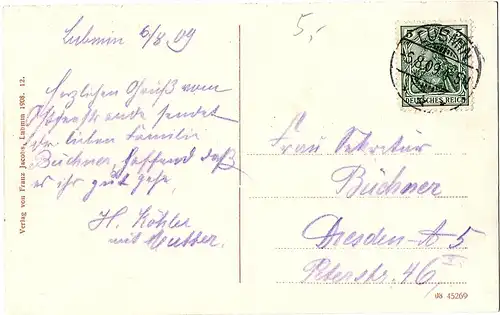 Lubmin 6/8 09
Herzlichen Gruß vom
Ostseestrande sendet
Ihr lieben Familie
Büchner, hoffend daß
es ihr gut gehe,
H. Köhler
mit Mutter.
Verlag von Franz Jacobs, Lubmin 1908. 12.
5,-
LUBMIN
6.8.09
DEUTSCHES REICH
Frau Sekretär
Büchner
Dresden-A 5
Peterstr. 46, I.
dß 45269